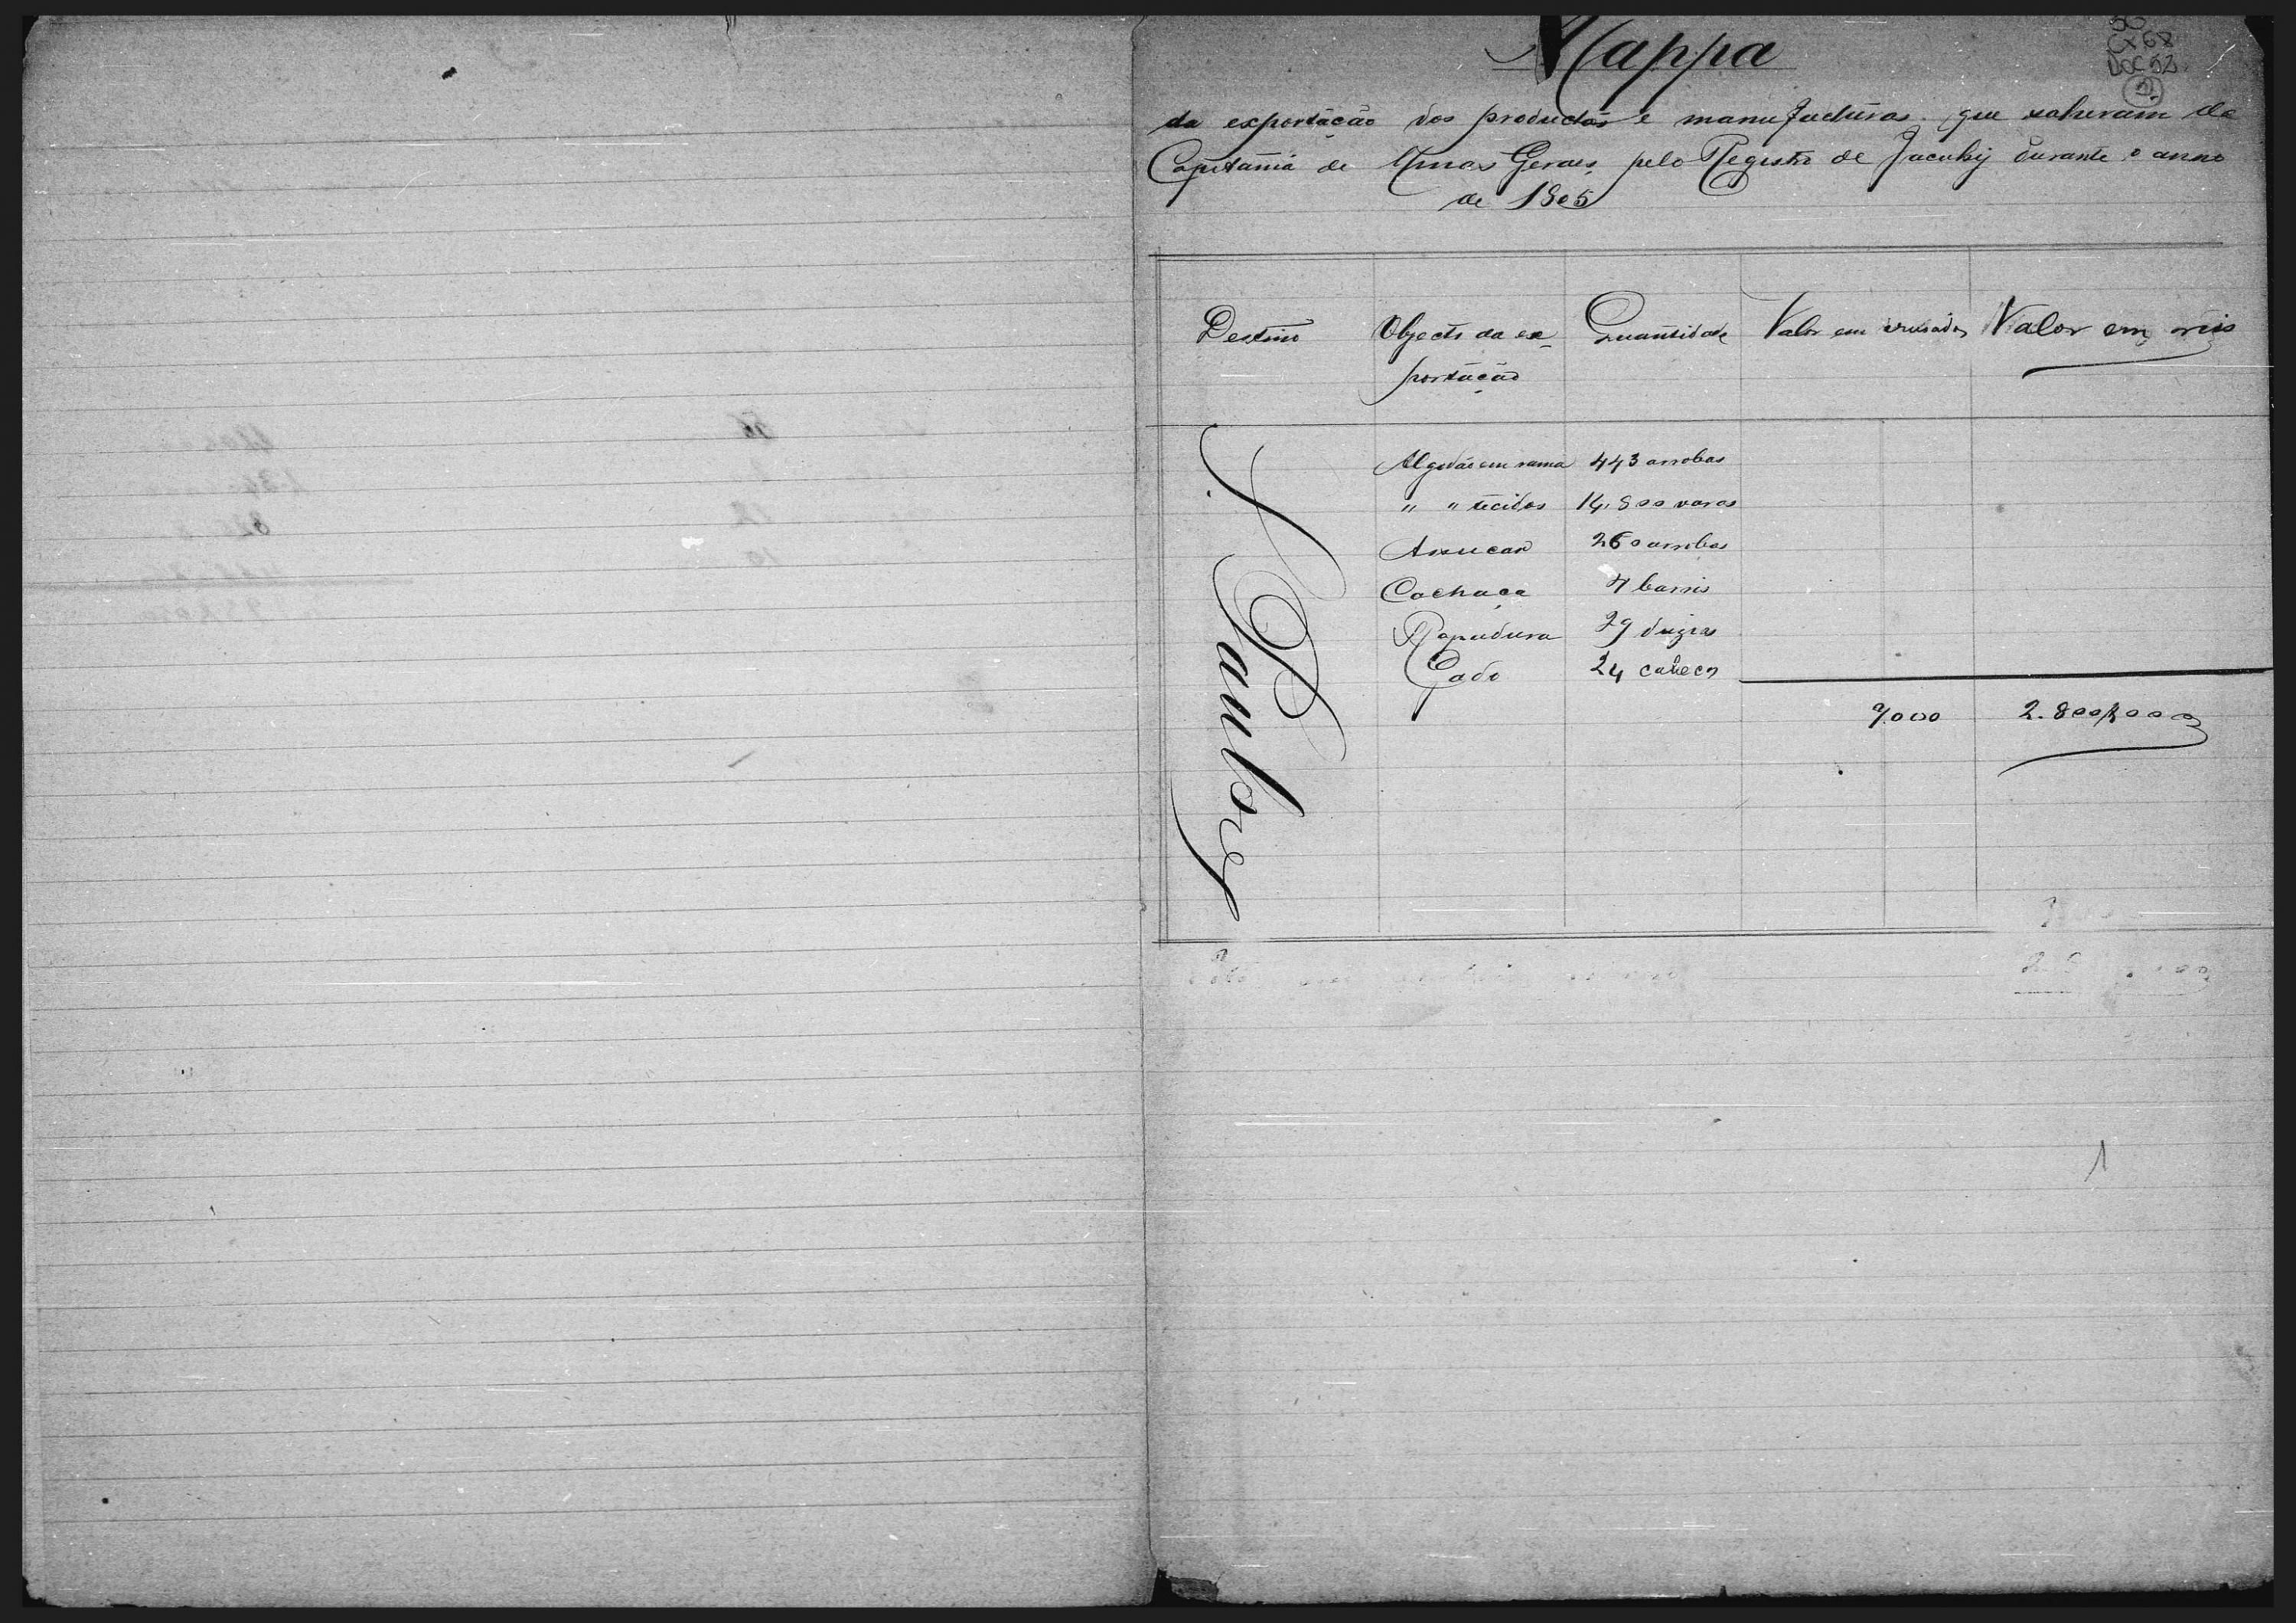 Mappa
Cx 68
Doc 52
da exportação dos productos e manufacturas que sahiram da
Capitania de Minas Geraes, pelo Registro de Jacuhy durante o anno
de 1805
Destino Objecto da ex- Quantidade Valor em crusados Valor em reis
portação
S. Paulo
Algodão em rama 443 arrobas
" " tecidos 14.800 varas
Assucar 260 arrobas
Cachaça 7 barris
Rapadura 29 duzias
Gado 24 cabeças
7.000 2.800$000
1